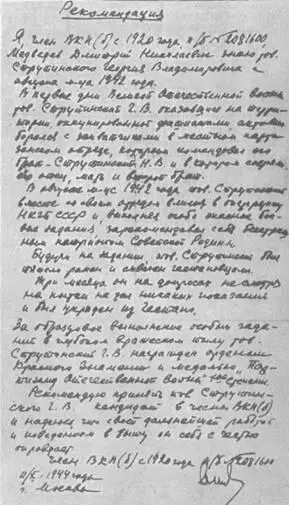 Рекомендация
Я, член ВКП(б) с 1920 года, п/б №
Медведев Дмитрий Николаевич знаю тов.
Струтинского Георгия Владимировича с
августа м-ца 1942 года.
В первые дни Великой Отечественной Войны
тов. Струтинский Г.В. оказавшись на терри-
тории, оккупированной фашистами активно
боролся с захватчиками в местном парти-
занском отряде, которым командовал его
брат - Струтинский Н.В. и в котором
его отец, мать и брат.
В августе м-це 1942 года тов. Струтинский
вместе со своим отрядом влился в
НКГБ СССР и, выполняя особо опасные бое-
вые задания, зарекомендовал себя
патриотом Советской Родины.
Будучи на задании тов. Струтинский был
тяжело ранен и схвачен гестаповцами.
Три месяца он на допросах не смотря
на пытки не дал никаких показаний
и был украден из гестапо.
За образцовое выполнение особых зада-
ний в глубоком вражеском тылу тов.
Струтинский Г.В. награжден орденом
Красного Знамени и медалью "Пар-
тизану Отечественной Войны" степени.
Рекомендую принять тов. Струтин-
ского Г.В. кандидатом в члены ВКП(б)
и надеюсь что своей дальнейшей работой
и поведением в он себя с честью
оправдает.
Член ВКП(б) с 1920 года п/б №
1944 года
г. Москва